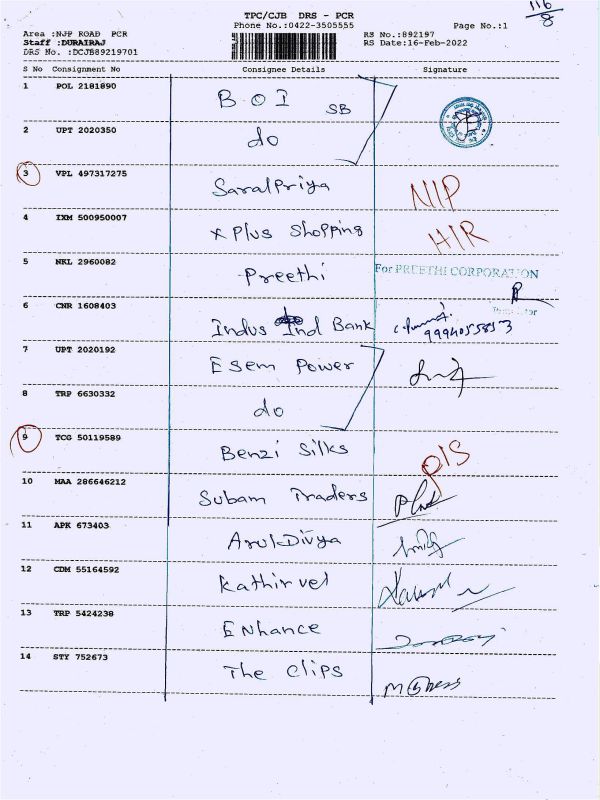 116
8
TPC/CJB DRS - PCR
Phone No.:0422-3505555
Page No.:1
Area :NJP ROAD PCR
Staff :DURAIRAJ
DRS No. :DCJB89219701
RS No.:892197
RS Date:16-Feb-2022
S No Consignment No Consignee Details Signature
1 POL 2181890 BOI SB
2 UPT 2020350 do
3 VPL 497317275 SaralPriya NIP
4 IXM 500950007 X Plus Shopping HIR
5 NKL 2960082 Preethi For PREETHI CORPORATION
6 CNR 1608403 Indus Ind Bank 9994055853
7 UPT 2020192 Esem Power
8 TRP 6630332 do
9 TCG 50119589 Benzi Silks O/S
10 MAA 286646212 Subam Traders
11 APK 673403 ArulDivya
12 CDM 55164592 Kathirvel
13 TRP 5424238 Enhance
14 STY 752673 The Clips